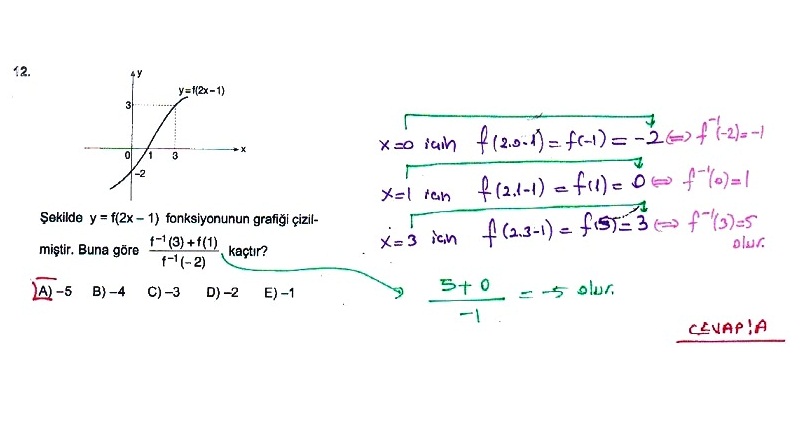 12.
y
y=f(2x−1)
3
0 1 3 x
−2
Şekilde y = f(2x − 1) fonksiyonunun grafiği çizil-
miştir. Buna göre f⁻¹(3) + f(1) / f⁻¹(−2) kaçtır?
A) −5 B) −4 C) −3 D) −2 E) −1
x=0 için f(2.0-1) = f(-1) = -2 ⇔ f⁻¹(-2) = -1
x=1 için f(2.1-1) = f(1) = 0 ⇔ f⁻¹(0) = 1
x=3 için f(2.3-1) = f(5) = 3 ⇔ f⁻¹(3) = 5
olur.
5+0 / -1 = -5 olur.
CEVAP: A